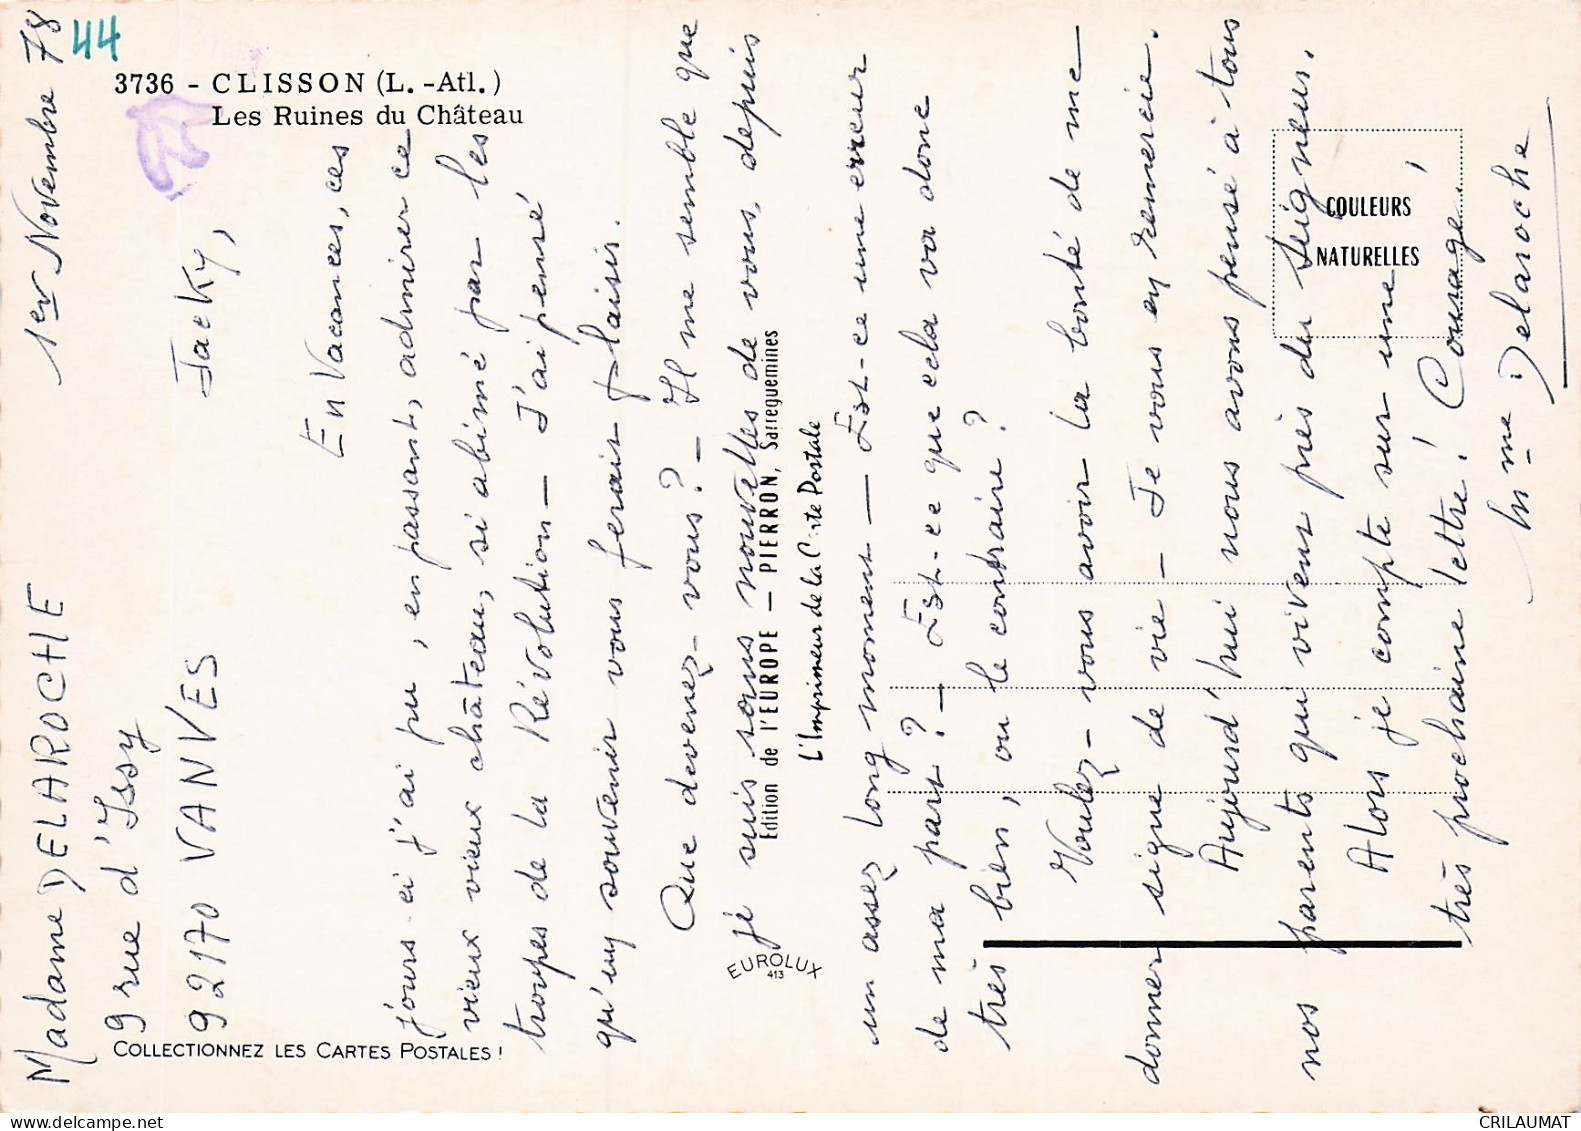 Madame DELAROCHE
9 rue d'Issy
92170 VANVES
1er Novembre 78
44
Jacky,
En Vacances, ces
jours-ci j'ai pu, en passant, admirer ce
vieux vieux château, si abimé par les
troupes de la Révolution — J'ai pensé
qu'un souvenir vous ferait plaisir.
Que devenez-vous? — Il me semble que
je suis sans nouvelles de vous, depuis
un assez long moment — Est-ce une erreur
de ma part? — Est-ce que cela va donc
très bien, ou le contraire?
Voulez-vous avoir la bonté de me
donner signe de vie — Je vous en remercie.
Aujourd'hui nous avons pensé à tous
nos parents qui vivent près du Seigneur.
Alors je compte sur une
très prochaine lettre! Courage!
Mme Delaroche
3736 - CLISSON (L.-Atl.)
Les Ruines du Château
COULEURS
NATURELLES
Edition de l'EUROPE — PIERRON, Sarreguemines
L'Imprimeur de la Carte Postale
EUROLUX
413
COLLECTIONNEZ LES CARTES POSTALES !
CRILAUMAT